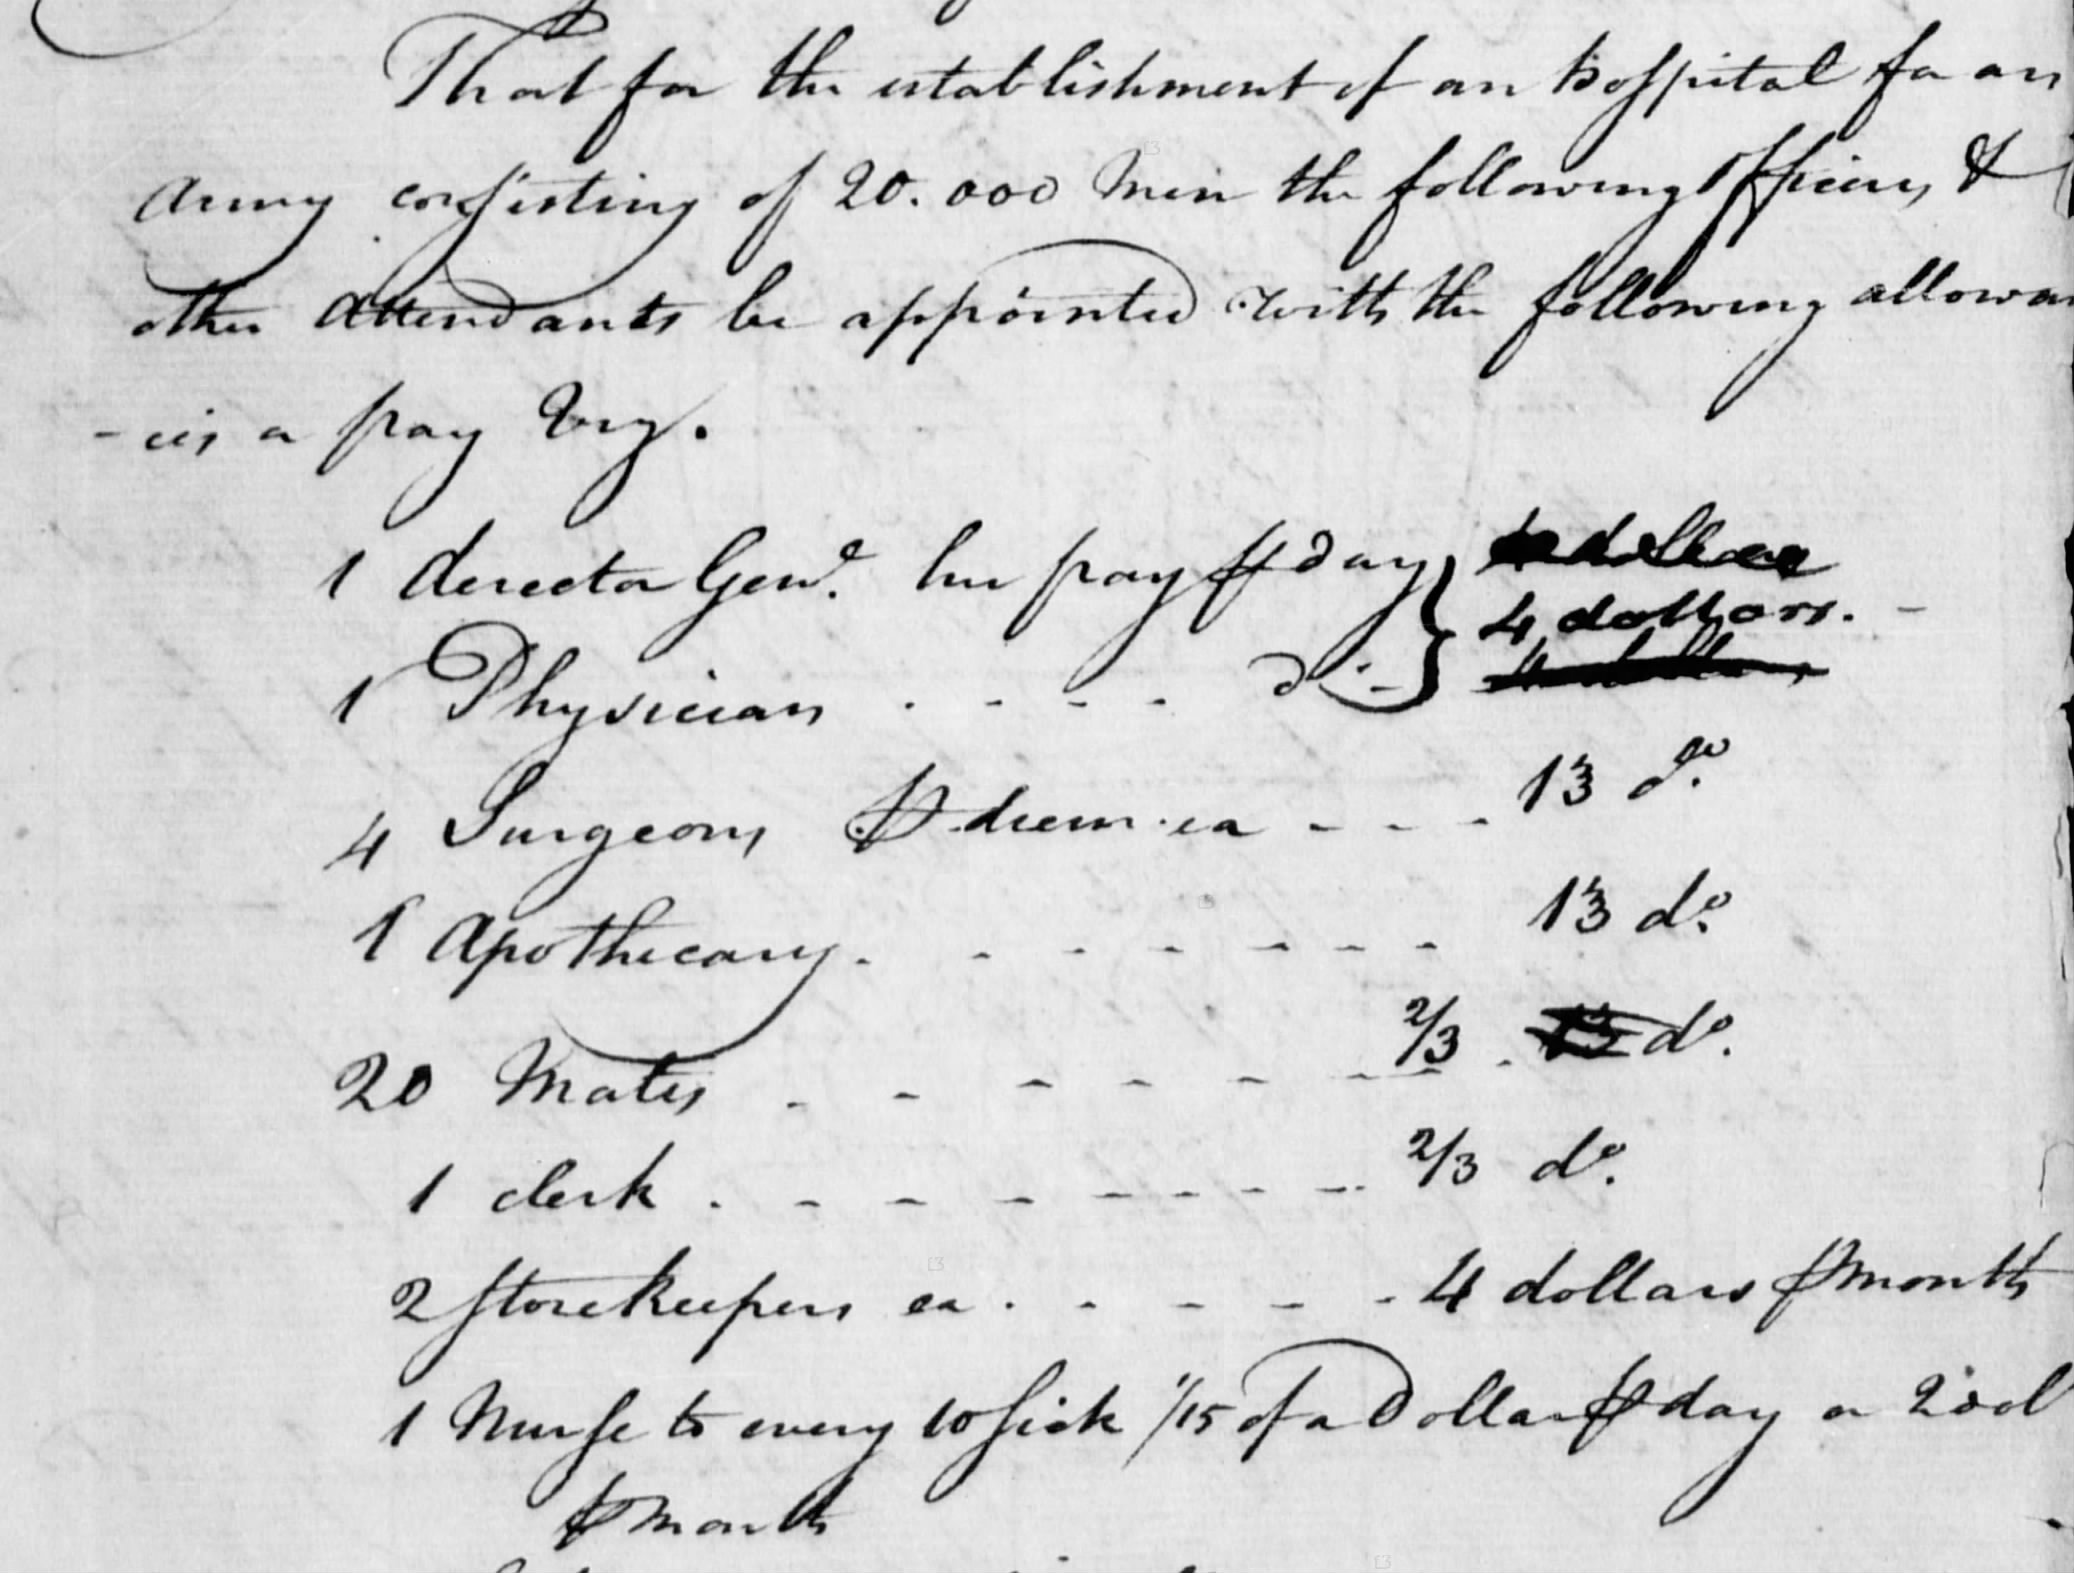 That for the establishment of an hospital for an
Army consisting of 20.000 Men the following officers &
other attendants be appointed with the following allowan
-ces or pay viz.
1 director Genl. his pay ⅌ day 4 dollars. -
1 Physician . - - - do. -
4 Surgeons ⅌ diem ea - - - 1 1/3 do.
1 Apothecary . - - - - - - 1 1/3 do.
20 Mates - - - - - - 2/3 . do.
1 clerk . - - - - - - - 2/3 do.
2 Storekeepers ea . - - - - 4 dollars ⅌ month
1 Nurse to every 10 sick 1/15 of a Dollar ⅌ day or 2 dol
⅌ month